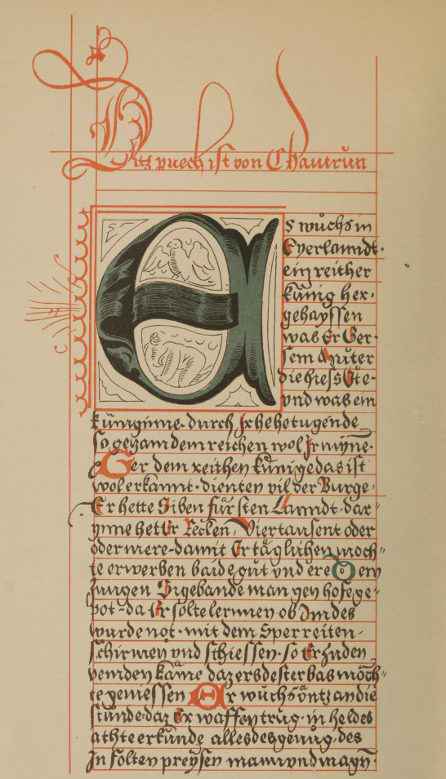 Ditz puech ist von Chautrun
Es wůchs in
Eyerlanndt ·
ein reicher
kůnig her ·
gehayssen
was Er Ger-
sein můter
die hiess Ůte ·
vnd was ein
kůniginne · durch Ir hohe tugende
so gezam dem reichen wol Ir mynne ·
Ger dem reichen kůnige das ist
wol erkannt · dienten vil der Burge ·
Er hette Siben fürsten Lanndt · dar-
ynne het Er Recken / Viertausent oder
oder mere · damit Er täglichen moch-
te erwerben baide gůt vnd ere Dem
Jungen Sigebande man gen hofe ge-
pot · da Er solte lernnen ob Im des
wurde not · mit dem Sper reiten ·
schirmen vnd schiessen · so Er zu den
veinden käme daz er sdester bas möch-
te geniessen Er wůchs vntz an die
stunde · daz Er waffen trůg · in heldes
achte er kunde alles des genůg · des
In solten preysen mann vnd magn